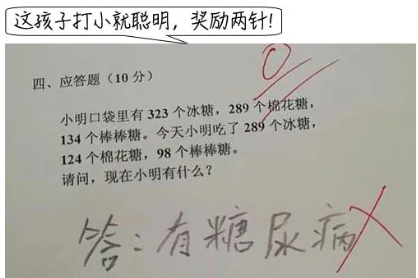 这孩子打小就聪明，奖励两针！
四、应答题（10 分）
小明口袋里有 323 个冰糖，289 个棉花糖，
134 个棒棒糖。今天小明吃了 289 个冰糖，
124 个棉花糖，98 个棒棒糖。
请问，现在小明有什么？
答：有糖尿病